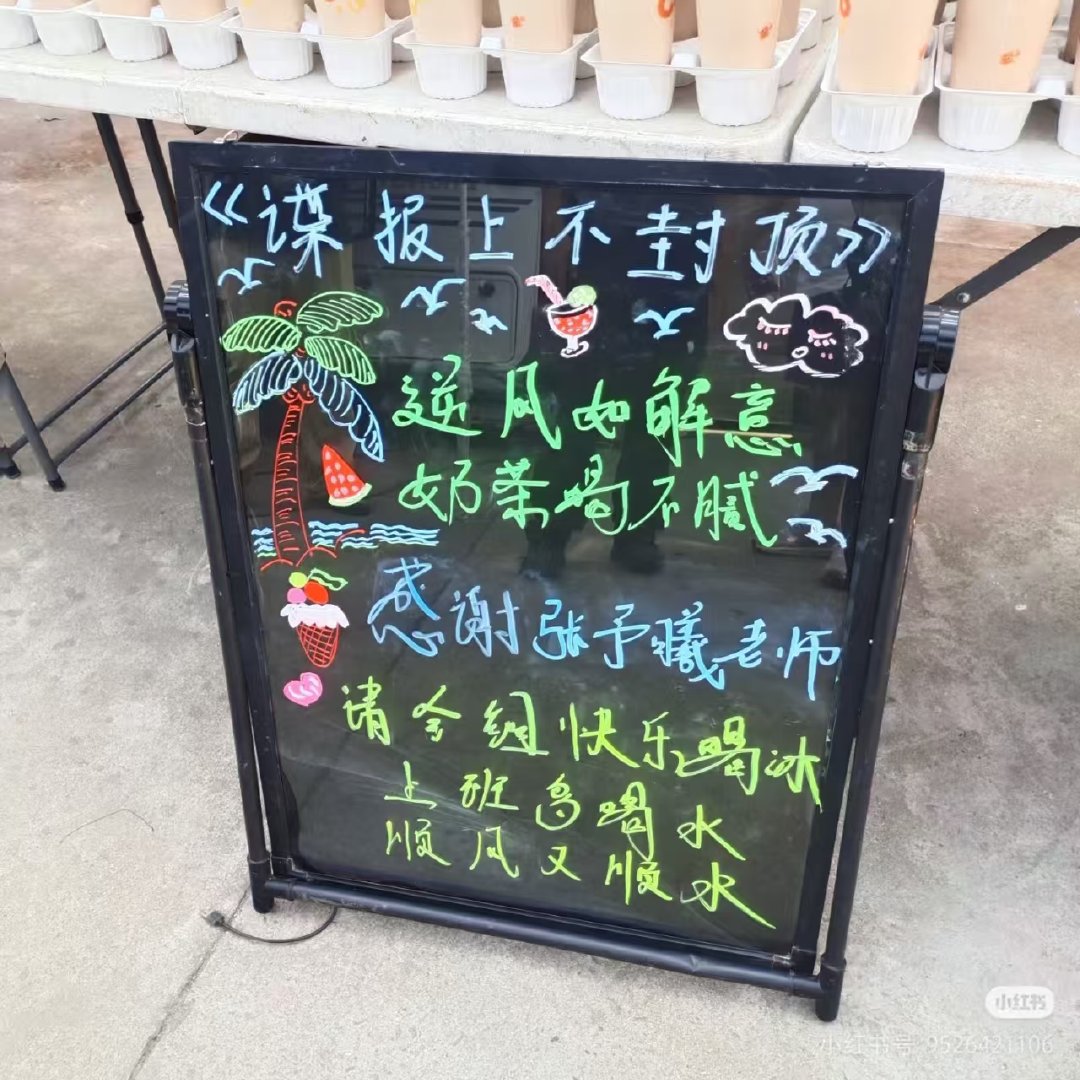 《谍报上不封顶》
逆风如解意
奶茶喝不腻
感谢张予曦老师
请全组快乐喝冰
上班多喝水
顺风又顺水
小红书
小红书号 9526421106